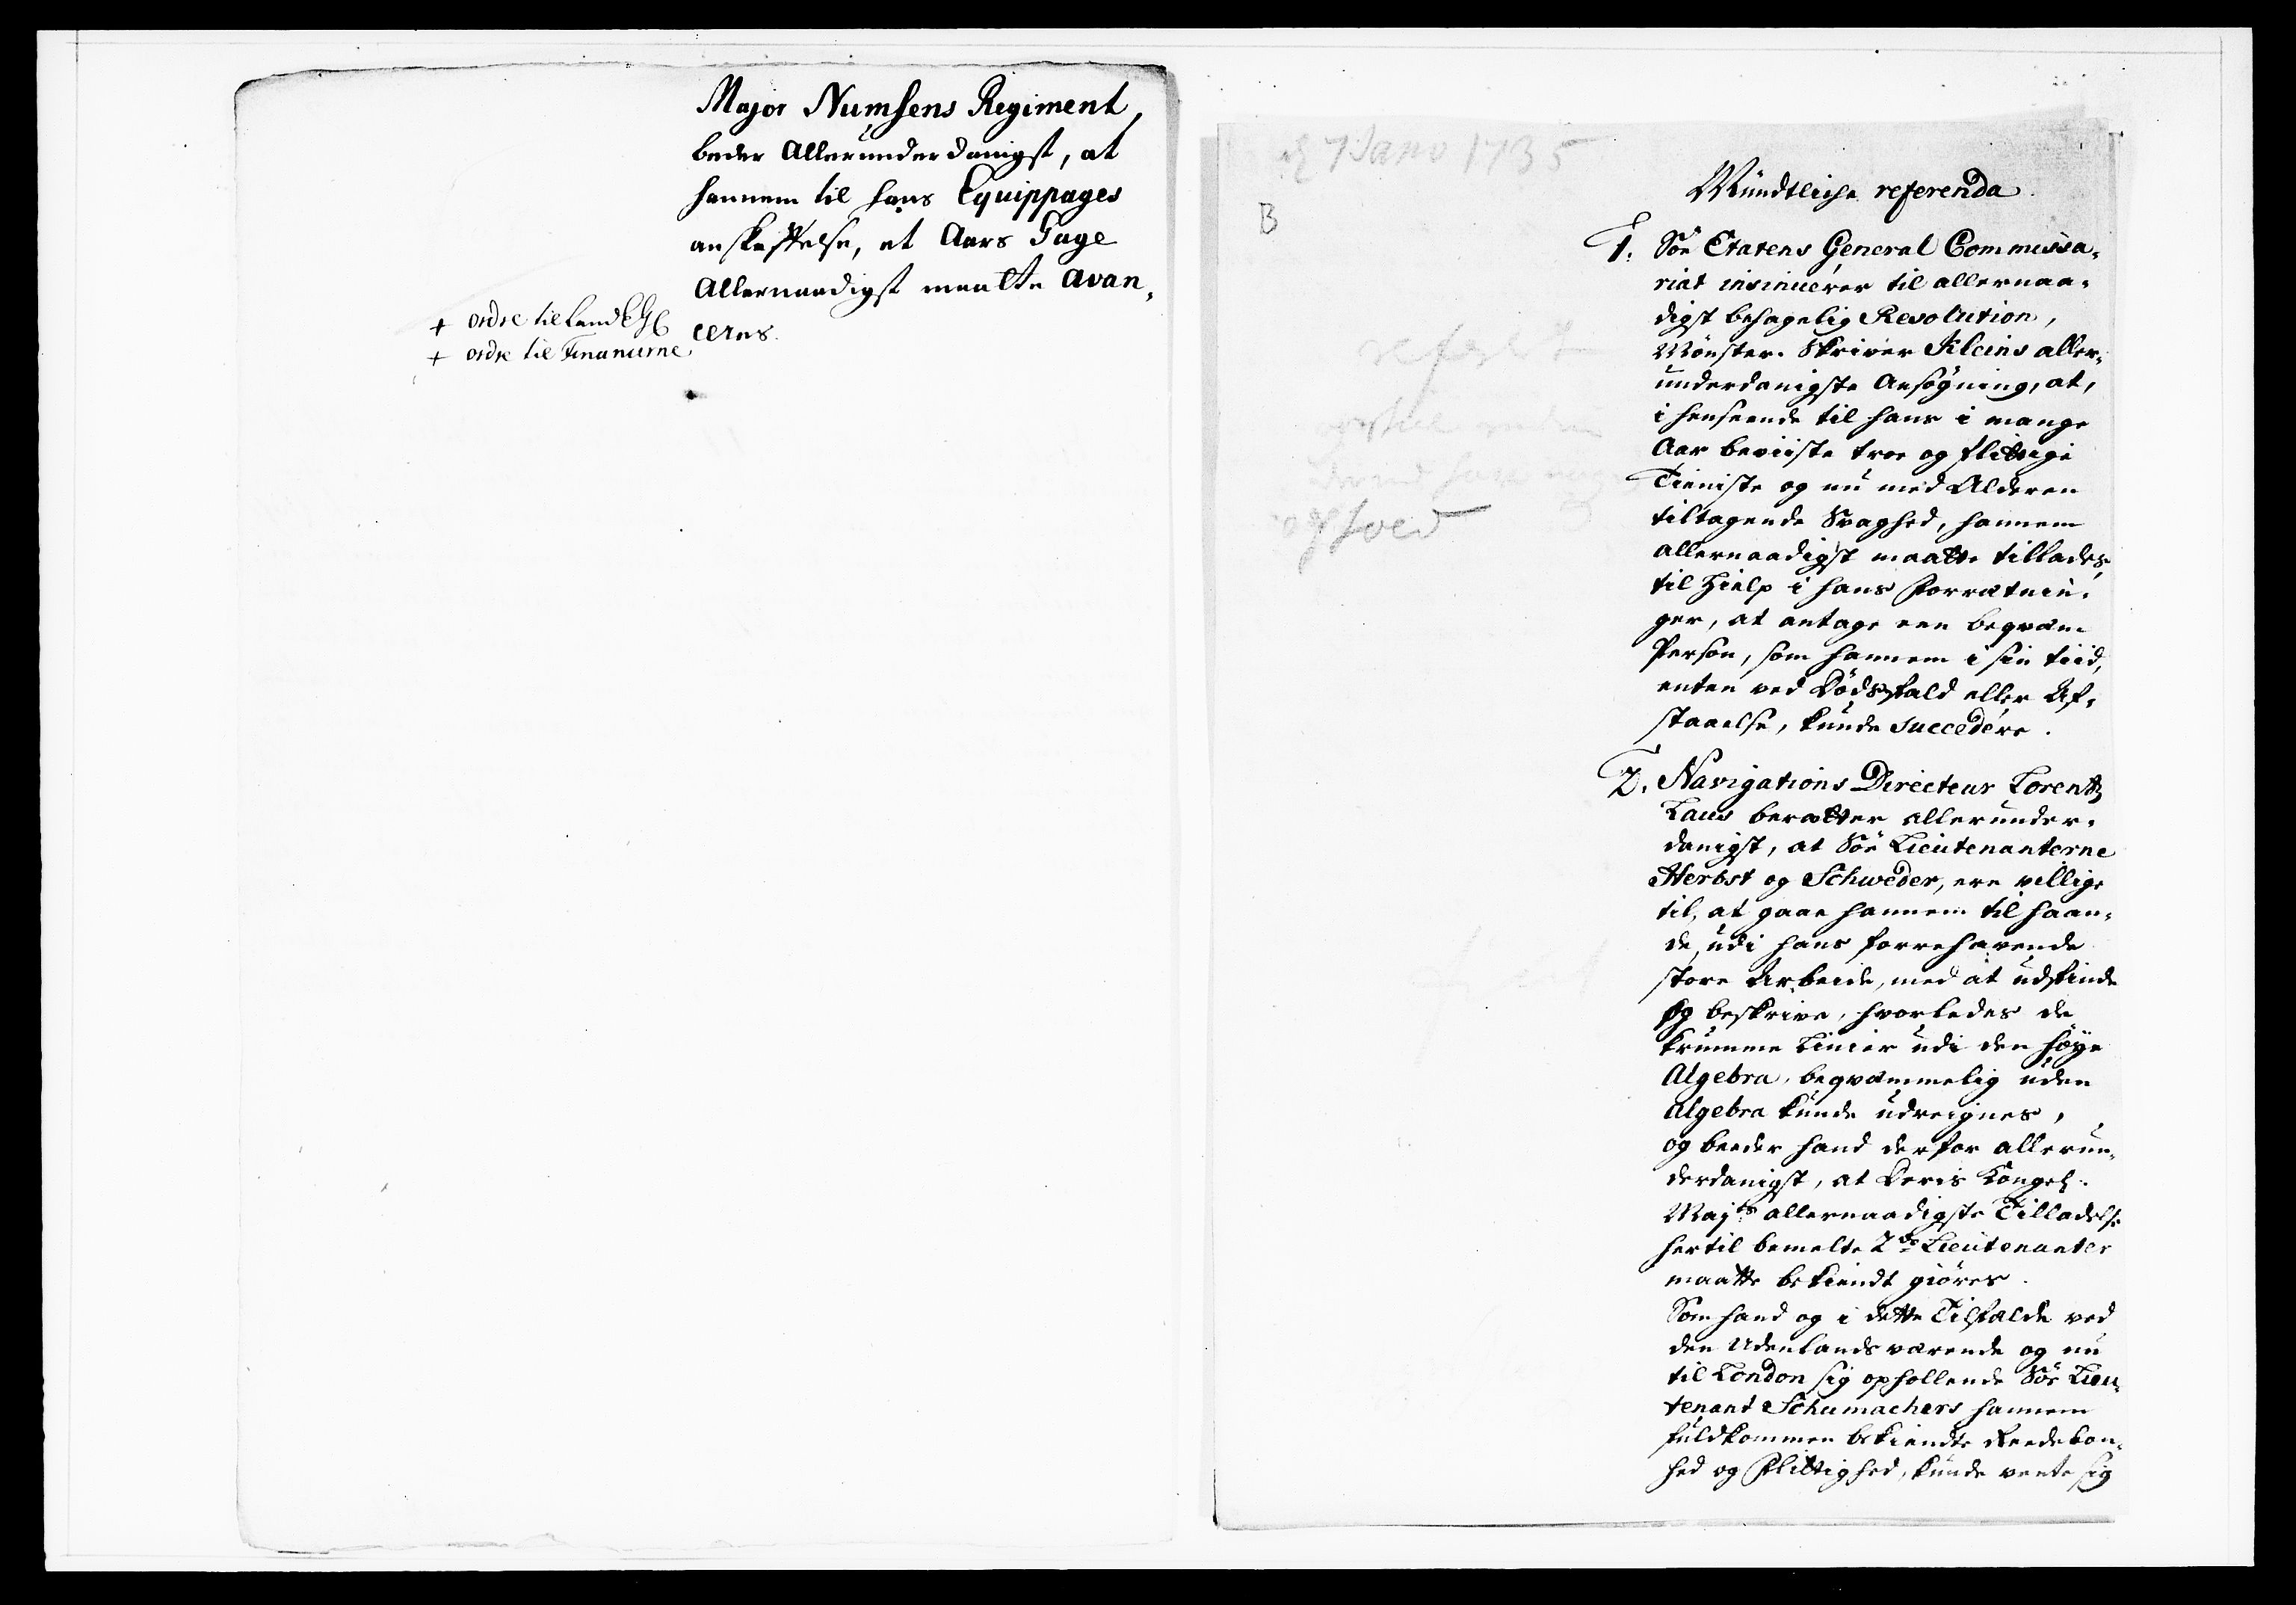 Major Numsens Regiment,
beder Allerunderdanigst, at
hannem til hans Equippages
anskaffelse, et Aars Gage
Allernaadigst maatte avan-
ceres.
+ ordre til Land EGC
+ ordre til Finantzerne
d 7 Janv 1735
B
Mündtliche referenda
1. Söe Etatens General Commissa-
riat insinuérer til allernaa-
digst behagelig Resolution,
Mönster-Skriver Kleins aller-
underdanigste Ansögning, at,
i henseende til hans i mange
Aar beviiste troe og flittige
Tieniste og nu med Alderen
tiltagende Svaghed, hannem
allernaadigst maatte tillades,
til Hielp i hans Forretnin-
ger, at antage een beqvæm
Person, som hannem i sin tiid,
enten ved Dödsfald eller Af-
staaelse, kunde succedére.
2. Navigations Directeur Lorentz
Laus beretter allerunder-
danigst, at Söe Lieutenanterne
Herbst og Schweder, ere villige
til, at gaae hannem til haan-
de, udi hans forrehavende
store Arbeide, med at udfinde
og beskrive, hvorledes de
krumme Linier udi den höye
Algebra, beqvæmmelig uden
Algebra kunde udreignes,
og beeder hand derfor allerun-
derdanigst, at Deris Kongel.
Majts allernaadigste Tilladelse
hertil bemelte 2de Lieutenanter
maatte bekiendt giöres.
Som hand og i dette Tilfælde ved
den Udenlands værende og nu
til London sig opholdende Söe Lieu-
tenant Schumachers hannem
fuldkommen bekiendte
hed og Flittighed, kunde vente sig